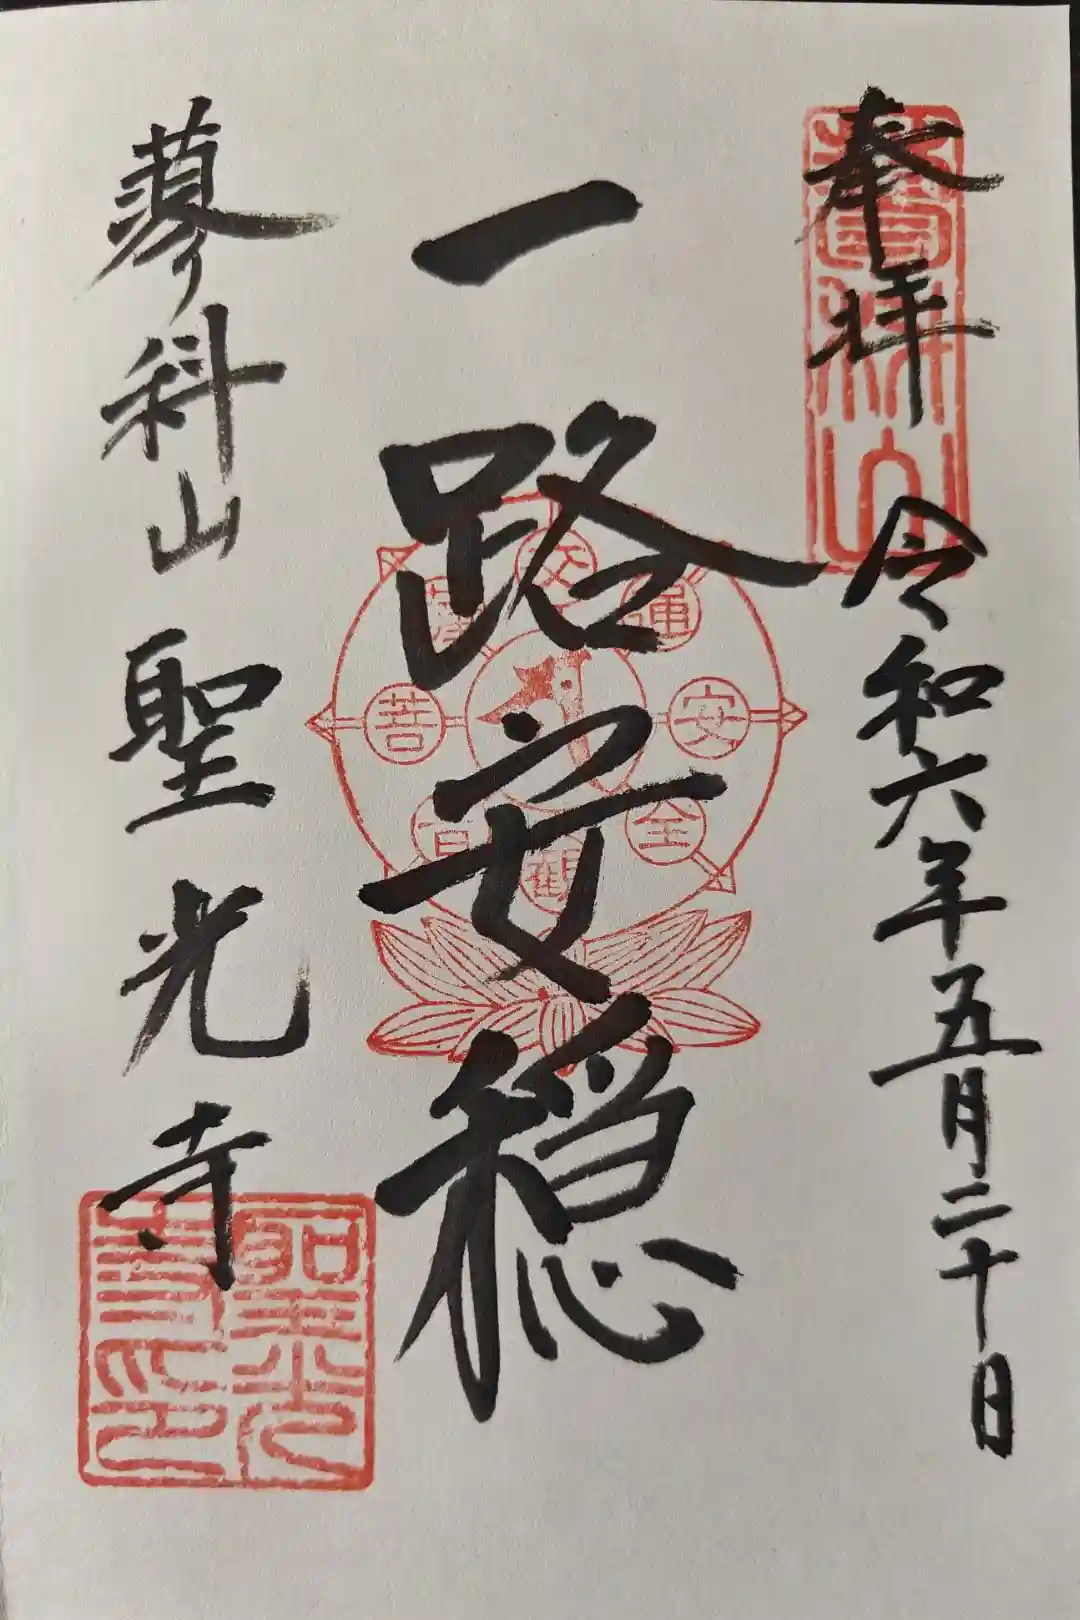 奉拝
令和六年五月二十日
蓼科山
一路安穏
交通安全観音菩薩
蓼科山聖光寺
聖光寺印